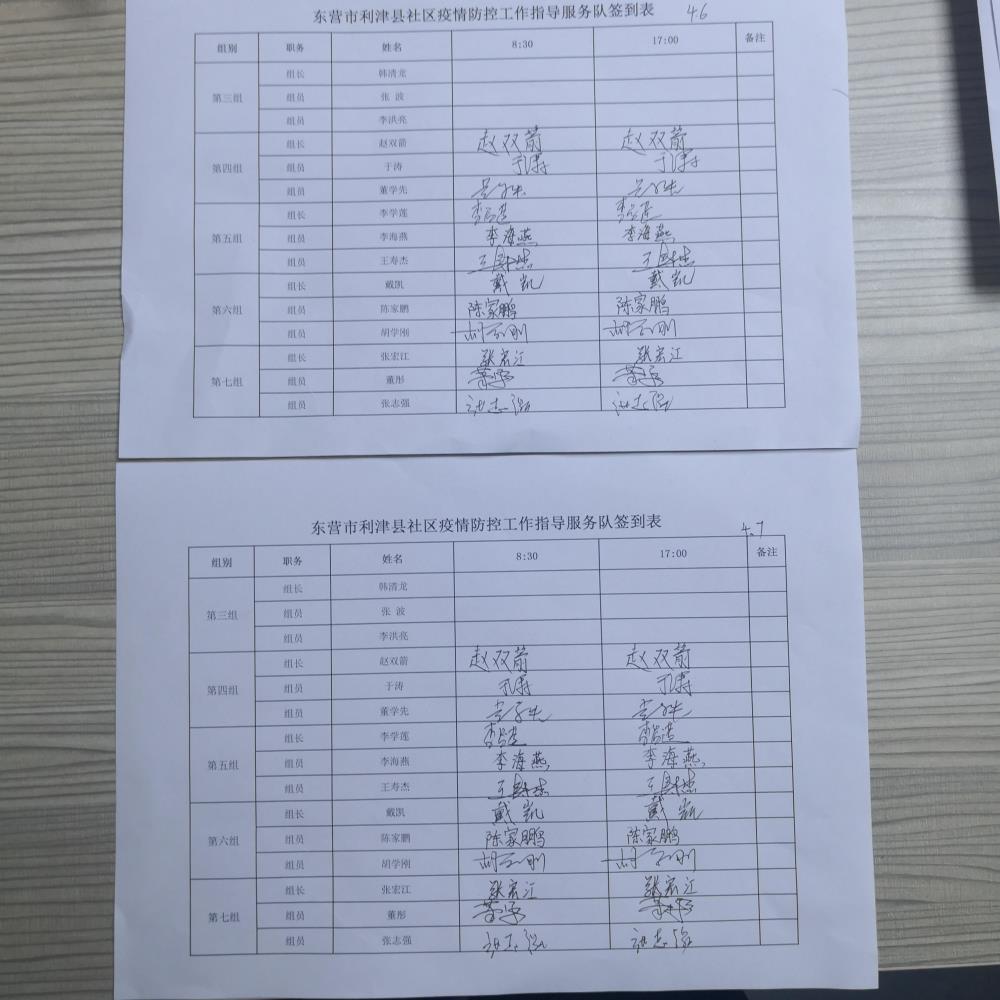 东营市利津县社区疫情防控工作指导服务队签到表 4.6
组别 职务 姓名 8:30 17:00 备注
第三组 组长 韩清龙
组员 张 波
组员 李洪亮
第四组 组长 赵双箭 赵双箭 赵双箭
组员 于涛 于涛 于涛
组员 董学先 董学先 董学先
第五组 组长 李学莲 李学莲 李学莲
组员 李海燕 李海燕 李海燕
组员 王寿杰 王寿杰 王寿杰
第六组 组长 戴凯 戴凯 戴凯
组员 陈家鹏 陈家鹏 陈家鹏
组员 胡学刚 胡学刚 胡学刚
第七组 组长 张宏江 张宏江 张宏江
组员 董彤 董彤 董彤
组员 张志强 张志强 张志强
东营市利津县社区疫情防控工作指导服务队签到表 4.7
组别 职务 姓名 8:30 17:00 备注
第三组 组长 韩清龙
组员 张 波
组员 李洪亮
第四组 组长 赵双箭 赵双箭 赵双箭
组员 于涛 于涛 于涛
组员 董学先 董学先 董学先
第五组 组长 李学莲 李学莲 李学莲
组员 李海燕 李海燕 李海燕
组员 王寿杰 王寿杰 王寿杰
第六组 组长 戴凯 戴凯 戴凯
组员 陈家鹏 陈家鹏 陈家鹏
组员 胡学刚 胡学刚 胡学刚
第七组 组长 张宏江 张宏江 张宏江
组员 董彤 董彤 董彤
组员 张志强 张志强 张志强